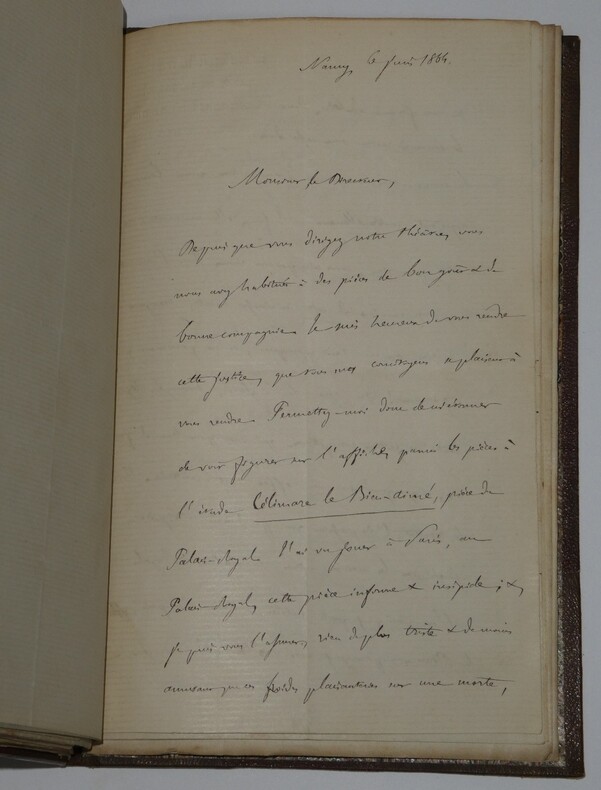 Nancy, 6 juin 1864.
Monsieur le Directeur,
Depuis que vous dirigez notre théâtre, vous
nous avez habitués à des pièces de bon goût & de
bonne compagnie. Je suis heureux de vous rendre
cette justice, que tous mes concitoyens se plaisent à
vous rendre. Permettez-moi donc de m'étonner
de voir figurer sur l'affiche, parmi les pièces à
l'étude Célimare le Bien-Aimé, pièce du
Palais-Royal. J'ai vu jouer à Paris, au
Palais-Royal, cette pièce informe & insipide ; &,
je puis vous l'assurer, rien de plus triste & de moins
amusant que ces froides plaisanteries sur une morte,